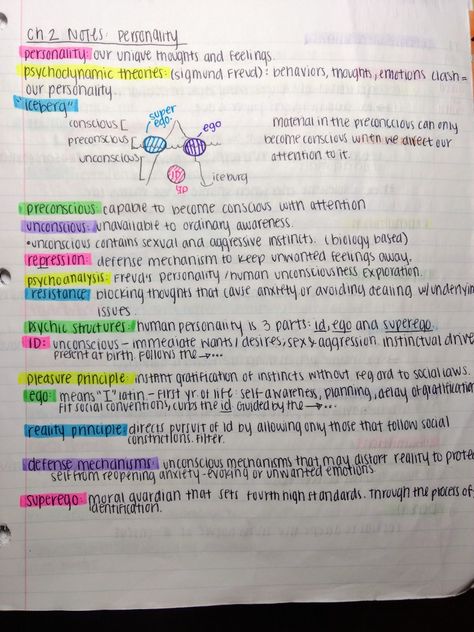 Ch 2 Notes: Personality
personality: our unique thoughts and feelings.
psychodynamic theories: (sigmund Freud): behaviors, thoughts, emotions clash =
our personality.
"iceberg"
super
ego
conscious [
ego
preconscious [
unconscious [
ID
iceburg
material in the preconscious can only
become conscious with we direct our
attention to it.
preconscious: capable to become conscious with attention
unconscious: unavailable to ordinary awareness.
•unconscious contains sexual and aggressive instincts. (biology based)
repression: defense mechanism to keep unwanted feelings away.
psychoanalysis: Freud's personality/human unconsciousness exploration.
resistance: blocking thoughts that cause anxiety or avoiding dealing w/undenlying
issues.
psychic structures: human personality is 3 parts: id, ego and superego.
ID: unconscious - immediate wants/desires, sex & aggression. instinctual drive
present at birth. Follows the →...
pleasure principle: instant gratification of instincts without regard to social laws.
ego: means "I" latin - first yr of life: self-awareness, planning, delay of gratification
Fit social conventions, curbs the id guided by the →...
reality principle: directs pursuit of id by allowing only those that follow social
constrictions. Filter.
defense mechanisms: unconscious mechanisms that may distort reality to prote
self from reopening anxiety-evoking or unwanted emotions.
superego: moral guardian that sets fourth high standards. Through the process of
identification.